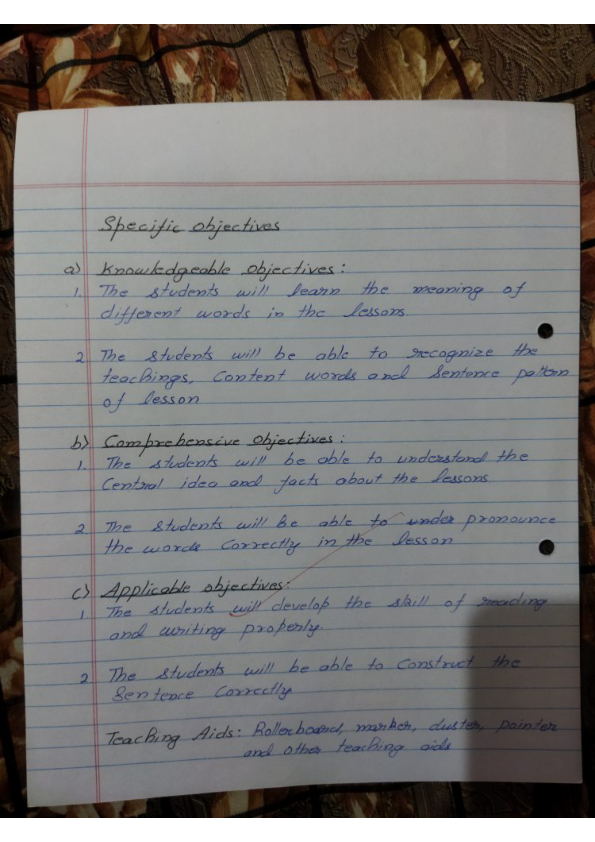 Specific objectives
a) Knowledgeable objectives :
1. The students will learn the meaning of
different words in the lessons
2. The students will be able to recognize the
teachings, Content words and Sentence pattern
of lesson
b) Comprehensive objectives :
1. The students will be able to understand the
Central idea and facts about the lessons
2. The students will be able to under pronounce
the words Correctly in the lesson
c) Applicable objectives:
1. The students will develop the skill of reading
and writing properly.
2 The students will be able to Construct the
Sentence Correctly
Teaching Aids: Rollerboard, marker, duster, pointer
and other teaching aids